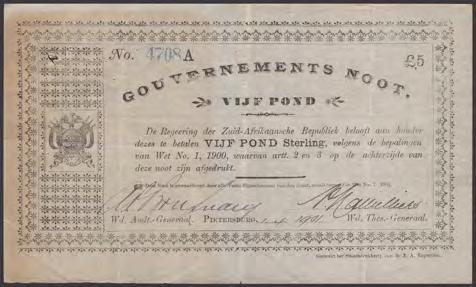 No. 4708 A
£5
GOUVERNEMENTS NOOT.
VIJF POND
De Regeering der Zuid-Afrikaansche Republiek belooft aan houder
dezes te betalen VIJF POND Sterling, volgens de bepalingen
van Wet No. 1, 1900, waarvan artt. 2 en 3 op de achterzijde van
deze noot zijn afgedrukt.
Wd. Audt.-Generaal. PIETERSBURG, 1901 Wd. Thes.-Generaal.